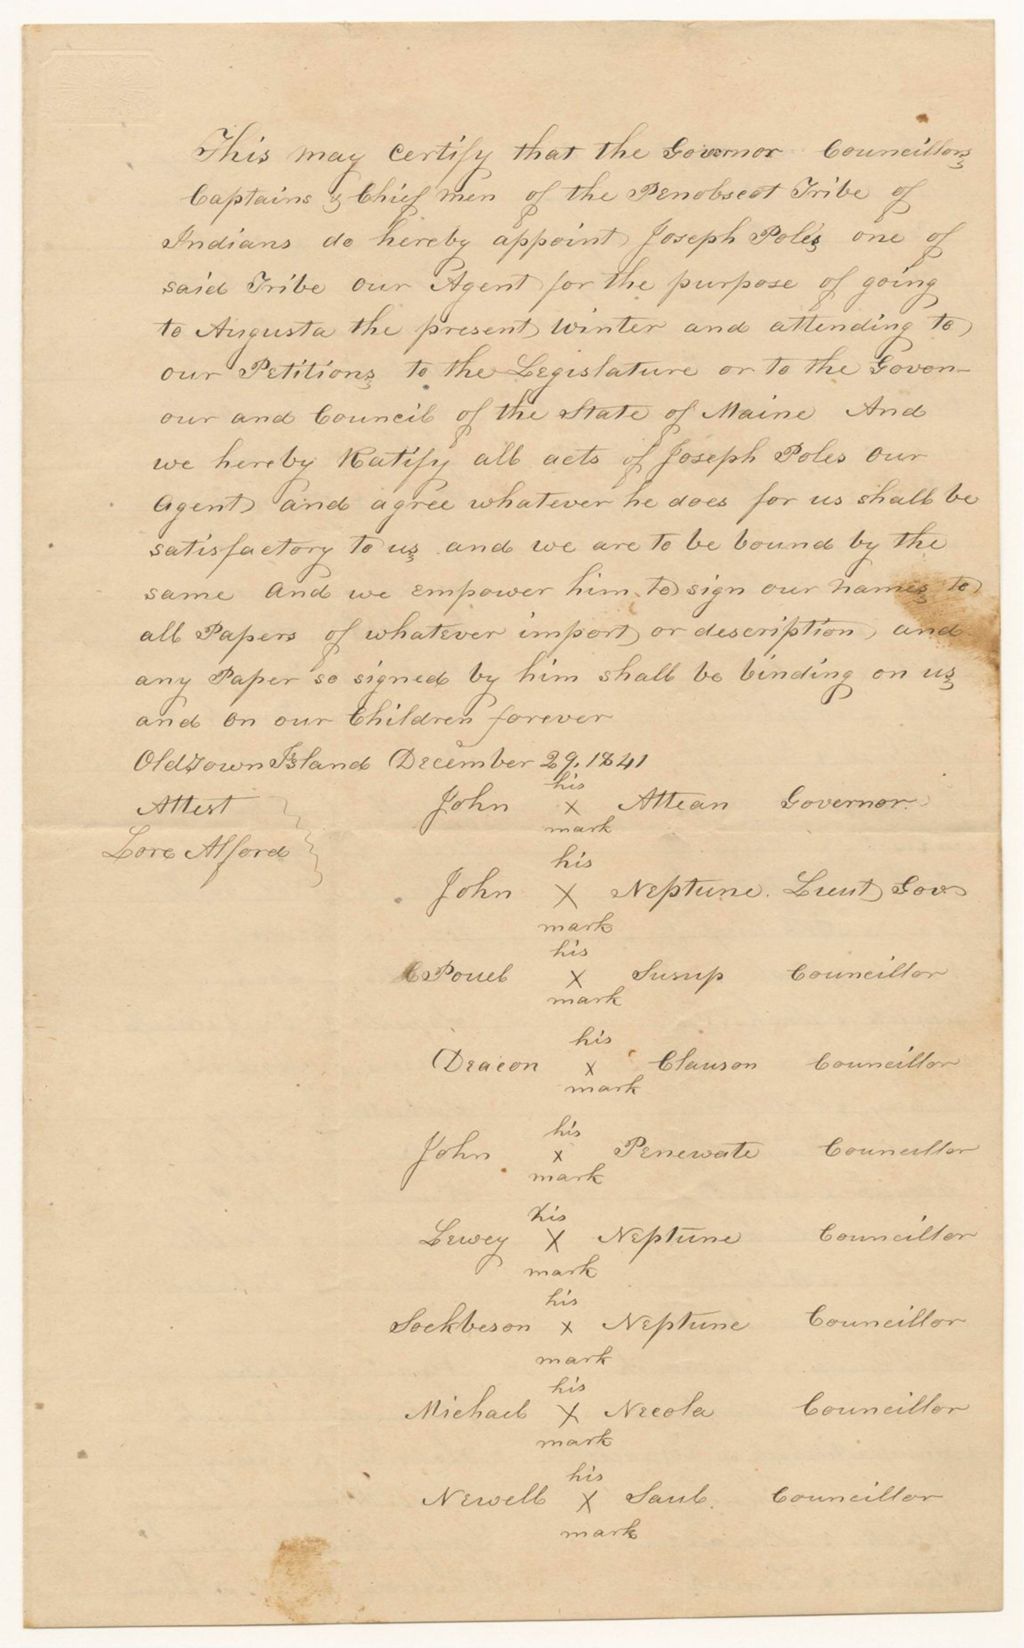 This may certify that the Governor Councillors
Captains & Chief men of the Penobscot Tribe of
Indians do hereby appoint Joseph Poles one of
said Tribe our Agent for the purpose of going
to Augusta the present winter and attending to
our Petitions to the Legislature or to the Govon-
our and Council of the State of Maine And
we hereby Ratify all acts of Joseph Poles our
Agent and agree whatever he does for us shall be
satisfactory to us and we are to be bound by the
same And we empower him to sign our names to
all Papers of whatever import or description, and
any Paper so signed by him shall be binding on us
and on our Children forever
Oldtown Island December 29. 1841
Attest
Lore Alford
his
John x Attean Governor.
mark
his
John X Neptune. Lieut Gov
mark
his
Pouel X Susup Councillor
mark
his
Deacon x Clauson Councillor
mark
his
John x Penewate Councillor
mark
his
Lewey X Neptune Councillor
mark
his
Sockbeson x Neptune Councillor
mark
his
Michael X Necola Councillor
mark
his
Newell X Saul. Councillor
mark